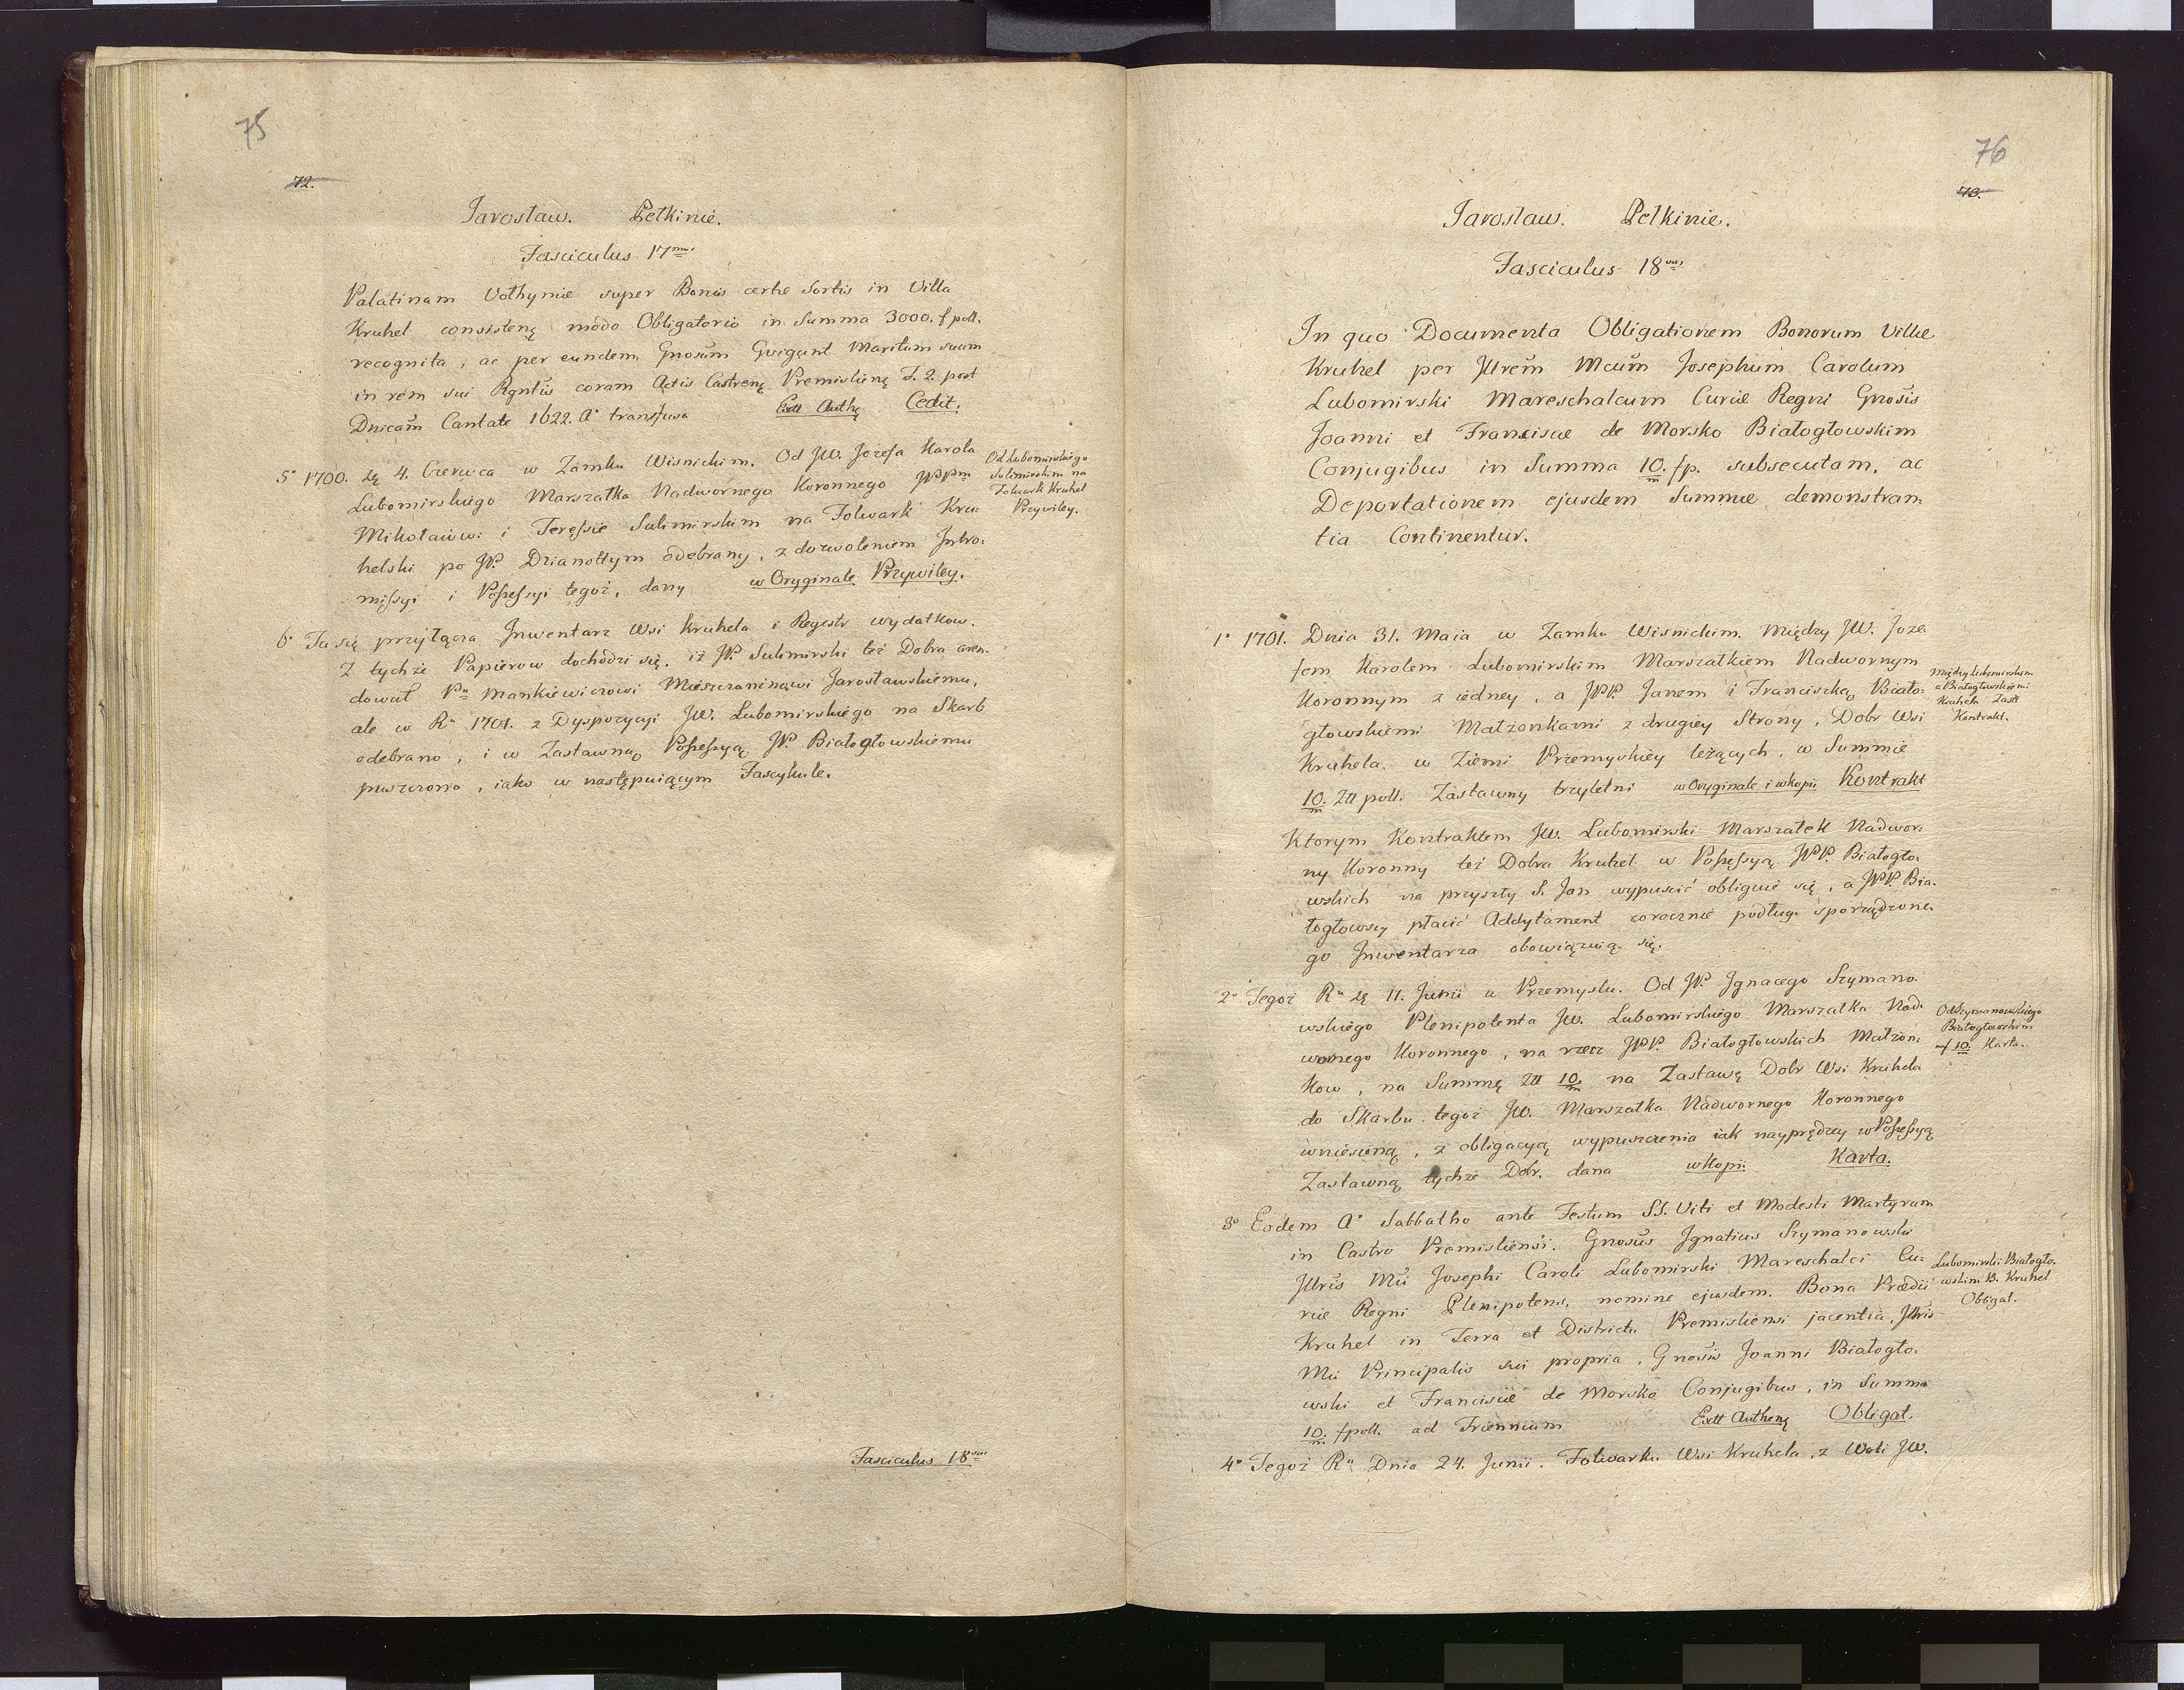 75
72.
Jarosław. Pełkinie.
Fasciculus 17mus
Palatinam Vołhyniæ super Bonis certæ Sortis in Villa
Kruhel consisteñ modo Obligatorio in Summa 3000. f poll.
recognita, ac per eundem Gnosũm Gvigant Maritum suum
in rem sui Rgntis coram Actis Castreñ Premislieñ F. 2. post
Dnicam̃ Cantate 1622. A° transfusa Extt Authę Cedit.
5° 1700. dę 4. Czerwca w Zamku Wisnickim. Od JW. Jozefa Karola
Lubomirskiego Marszałka Nadwornego Koronnego JWPm
Mikołaiowi i Teressie Sulimirskim na Folwark Kru:
helski po JP. Dzianottym odebrany, z dozwoleniem Intro:
missyi i Possessyi tegoż, dany w Oryginale Przywiley.
Od Lubomirskiego
Sulimirskim na
Folwark Kruhel
Przywiley.
6° Tu się przyłącza Inwentarz Wsi Kruhela i Regestr wydatkow.
Z tychże Papierow dochodzi się, iż JP. Sulimirski też Dobra aren:
dował Pu Mankiewiczowi Mieszczaninowi Jarosławskiemu,
ale w Ru 1701. z Dyspozycyi JW. Lubomirskiego na Skarb
odebrano, i w Zastawną Possessyą JP. Białogłowskiemu
puszczono, iako w następuiącym Fascykule.
Fasciculus 18vus
76
73.
Jarosław. Pełkinie.
Fasciculus 18vus
In quo Documenta Obligationem Bonorum Villæ
Kruhel per Jllrem̃ Mcum̃ Josephum Carolum
Lubomirski Mareschalcum Curiæ Regni Gnosis̃
Joanni et Franciscæ de Morsko Białogłowskim
Conjugibus in Summa 10. fp. subsecutam, ac
m
Deportationem ejusdem Summæ demonstran:
tia Continentur.
1° 1701. Dnia 31. Maia w Zamku Wisnickim. Między JW. Joze
fem Karolem Lubomirskim Marszałkiem Nadwornym
Koronnym z iedney, a JPP. Janem i Franciszką Biało:
głowskiemi Małżonkami z drugiey Strony, Dobr Wsi
Kruhela w Ziemi Przemyskiey leżących, w Summie
10. Zll poll. Zastawny trzyletni w Oryginale i w kopii Kontrakt
m
Między Lubomirskim
a Białogłowskiemi
Kruhela Zast
Kontrakt.
Ktorym Kontraktem JW. Lubomirski Marszałek Nadwor:
ny Koronny też Dobra Kruhel w Possessyą JPP. Białogło:
wskich na przyszły S. Jan wypuścić obliguie się, a JPP. Bia:
łogłowscy płacić Addytament corocznie podług sporządzone:
go Inwentarza obowiązuią się.
2° Tegoż Ru dę 11. Junii w Przemyslu. Od JP. Ignacego Szymano:
wskiego Plenipotenta JW. Lubomirskiego Marszałka Nad:
wornego Koronnego, na rzecz JPP. Białogłowskich Małżon:
kow, na Summę Zll 10. na Zastawę Dobr Wsi Kruhela
m
do Skarbu tegoż JW. Marszałka Nadwornego Koronnego
wniesioną, z obligacyą wypuszczenia iak nayprędzey w Possessyą
Zastawną tychże Dobr. dana w Kopii Karta.
Od Szymanowskiego
Białogłowskim
nf 10. Karta.
m
3° Eodem A° Sabbatho ante Festum SS. Viti et Modesti Martyrum
in Castro Premisliensi. Gnosus̃ Ignatius Szymanowski
Jllris̃ Mci Josephi Caroli Lubomirski Mareschalci Cu:
riæ Regni Plenipotens, nomine ejusdem. Bona Prædii
Kruhel in Terra et Districtu Premisliensi jacentia, Jllris̃
Mci Principalis sui propria, Gnosis̃ Joanni Białogło:
wski et Franciscæ de Morsko Conjugibus, in Summa
10. fpoll. ad Triennium Extt Autheñ Obligat.
m
Lubomirski Białogło:
wskim B. Kruhel
Obligat.
4° Tegoż Ru Dnia 24. Junii. Folwarku Wsi Kruhela, z Woli JW.